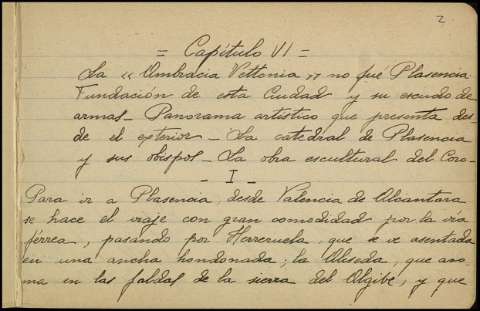 2
= Capítulo VI =
La "Ambracia Vettonia" no fué Plasencia
Fundación de esta Ciudad y su escudo de
armas_ Panorama artistico que presenta des-
de el exterior_ La catedral de Plasencia
y sus obispos_ La obra escultural del Coro_
_ I _
Para ir a Plasencia, desde Valencia de Alcantara
se hace el viaje con gran comodidad por la via
férrea, pasando por Herreruela, que se ve asentada
en una ancha hondonada; la Aliseda, que aso-
ma en las faldas de la sierra del Algibe, y que